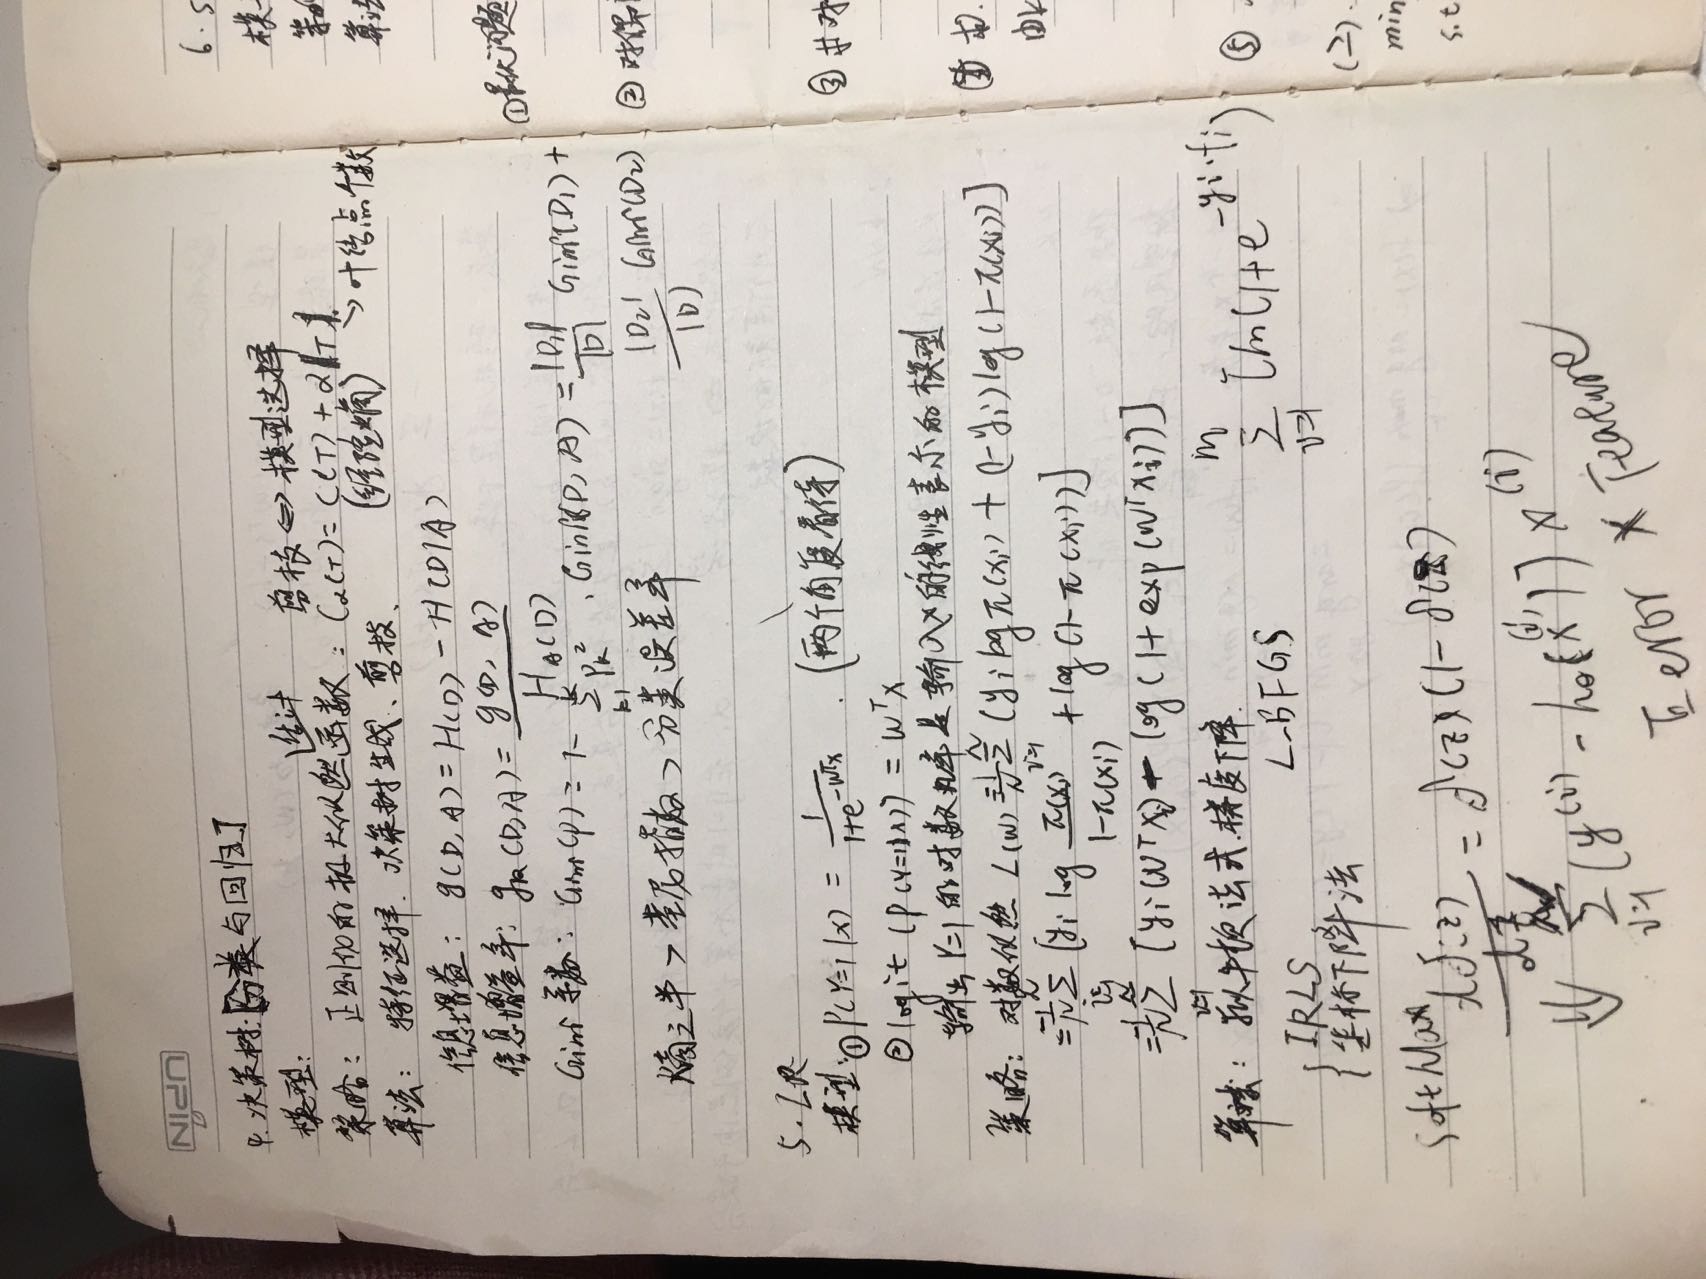 UPIN
4. 决策树:[分类与回归]
模型:
估计 剪枝 ⇔ 模型选择
策略: 正则化的极大似然函数: Cα(T) = C(T) + α|T|
(经验熵) → 叶结点个数
算法: 特征选择、决策树生成、剪枝、
信息增益: g(D, A) = H(D) - H(D|A)
信息增益率: gR(D, A) = g(D, A) / HA(D)
Gini 系数: Gini(p) = 1 - Σ_{k=1}^{K} Pk², Gini(D, A) = |D1|/|D| Gini(D1) +
|D2|/|D| Gini(D2)
熵之半 > 基尼指数 > 分类误差率
5. LR
模型: ① P(Y=1|x) = 1/(1+e^{-wTx}) . (两个角度看待)
② logit (P(Y=1|x)) = wTx
输出 Y=1 的对数几率是输入x的线性表示的模型
策略: 对数似然 L(w) = -1/N Σ_{i=1}^{N} (yi log π(xi) + (1-yi) log (1-π(xi))]
= -1/N Σ_{i=1}^{N} [yi log π(xi)/(1-π(xi)) + log (1-π(xi))]
= -1/N Σ_{i=1}^{N} [yi(wTxi) - log (1+exp(wTxi))]
算法: 拟牛顿法式.梯度下降.
L-BFGS
Σ_{i=1}^{m} [ln(1+e^{-yi·fi})
{ IRLS
坐标下降法
SoftMax
dδ(z)/dz = δ(z)(1-δ(z))
⇓ Σ_{i=1} (y^(i) - hθ(x^(i))) x^(i)
Eeror × Feature
6. S
模
策略
算法
①最优问题
② 对偶
③ 并对
④ 由
⑤
(2).
min
s.t